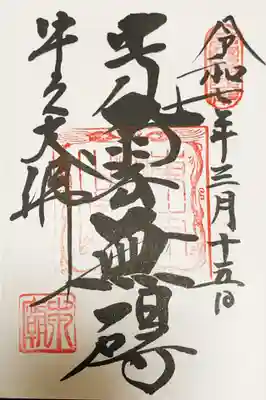 令和七年三月十五日
光雲無碍
牛久大佛